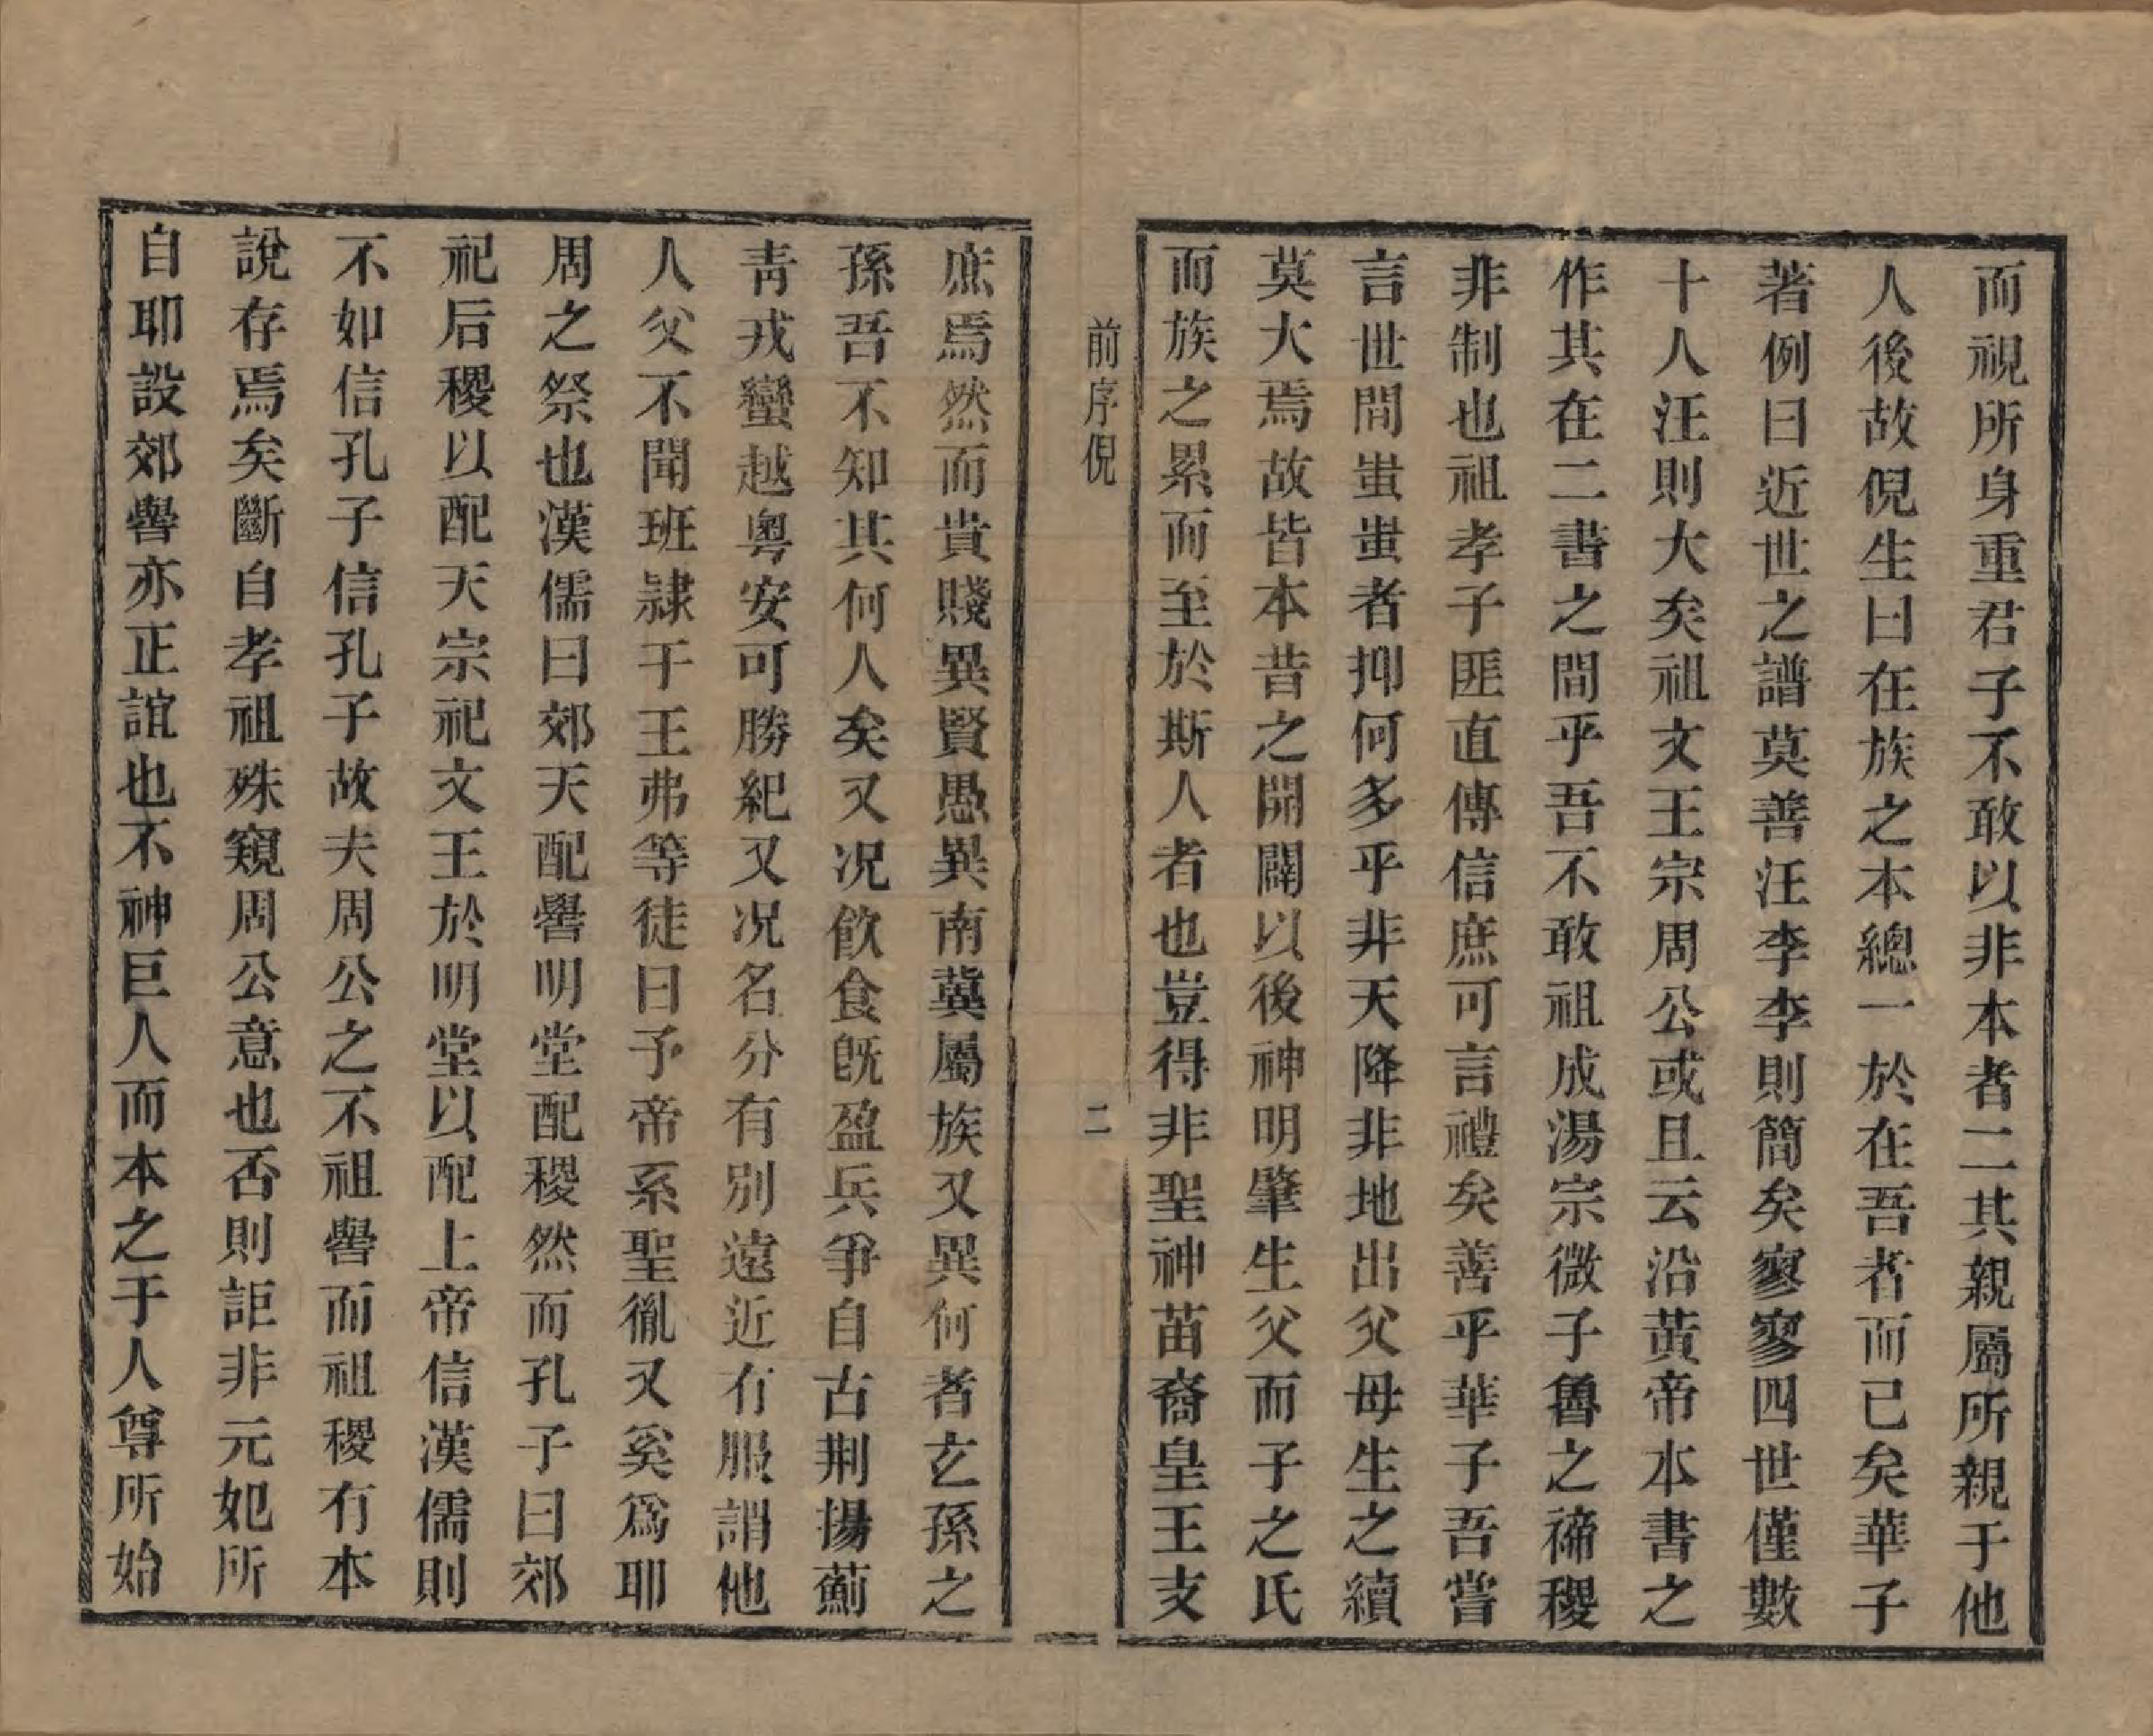 而視所身重君子不敢以非本者二其親屬所親于他
人後故倪生曰在族之本總一於在吾者而已矣華子
著例曰近世之譜莫善汪李李則簡矣寥寥四世僅數
十人汪則大矣祖文王宗周公或且云沿黃帝本書之
作其在二書之間乎吾不敢祖成湯宗微子魯之禘稷
非制也祖孝子匪直傳信庶可言禮矣善乎華子吾嘗
言世間蚩蚩者抑何多乎非天降非地出父母生之續
莫大焉故皆本昔之開闢以後神明肇生父而子之氏
而族之累而至於斯人者也豈得非聖神苗裔皇王支
前序倪
二
庶焉然而貴賤異賢愚異南冀屬族又異何者玄孫之
孫吾不知其何人矣又况飲食旣盈兵爭自古荆揚薊
靑戎蠻越粵安可勝紀又况名分有別遠近有服謂他
人父不聞班隷于王弗等徒曰予帝系聖胤又奚爲耶
周之祭也漢儒曰郊天配嚳明堂配稷然而孔子曰郊
祀后稷以配天宗祀文王於明堂以配上帝信漢儒則
不如信孔子信孔子故夫周公之不祖嚳而祖稷有本
說存焉矣斷自孝祖殊窺周公意也否則詎非元妃所
自耶設郊嚳亦正誼也不神巨人而本之于人尊所始